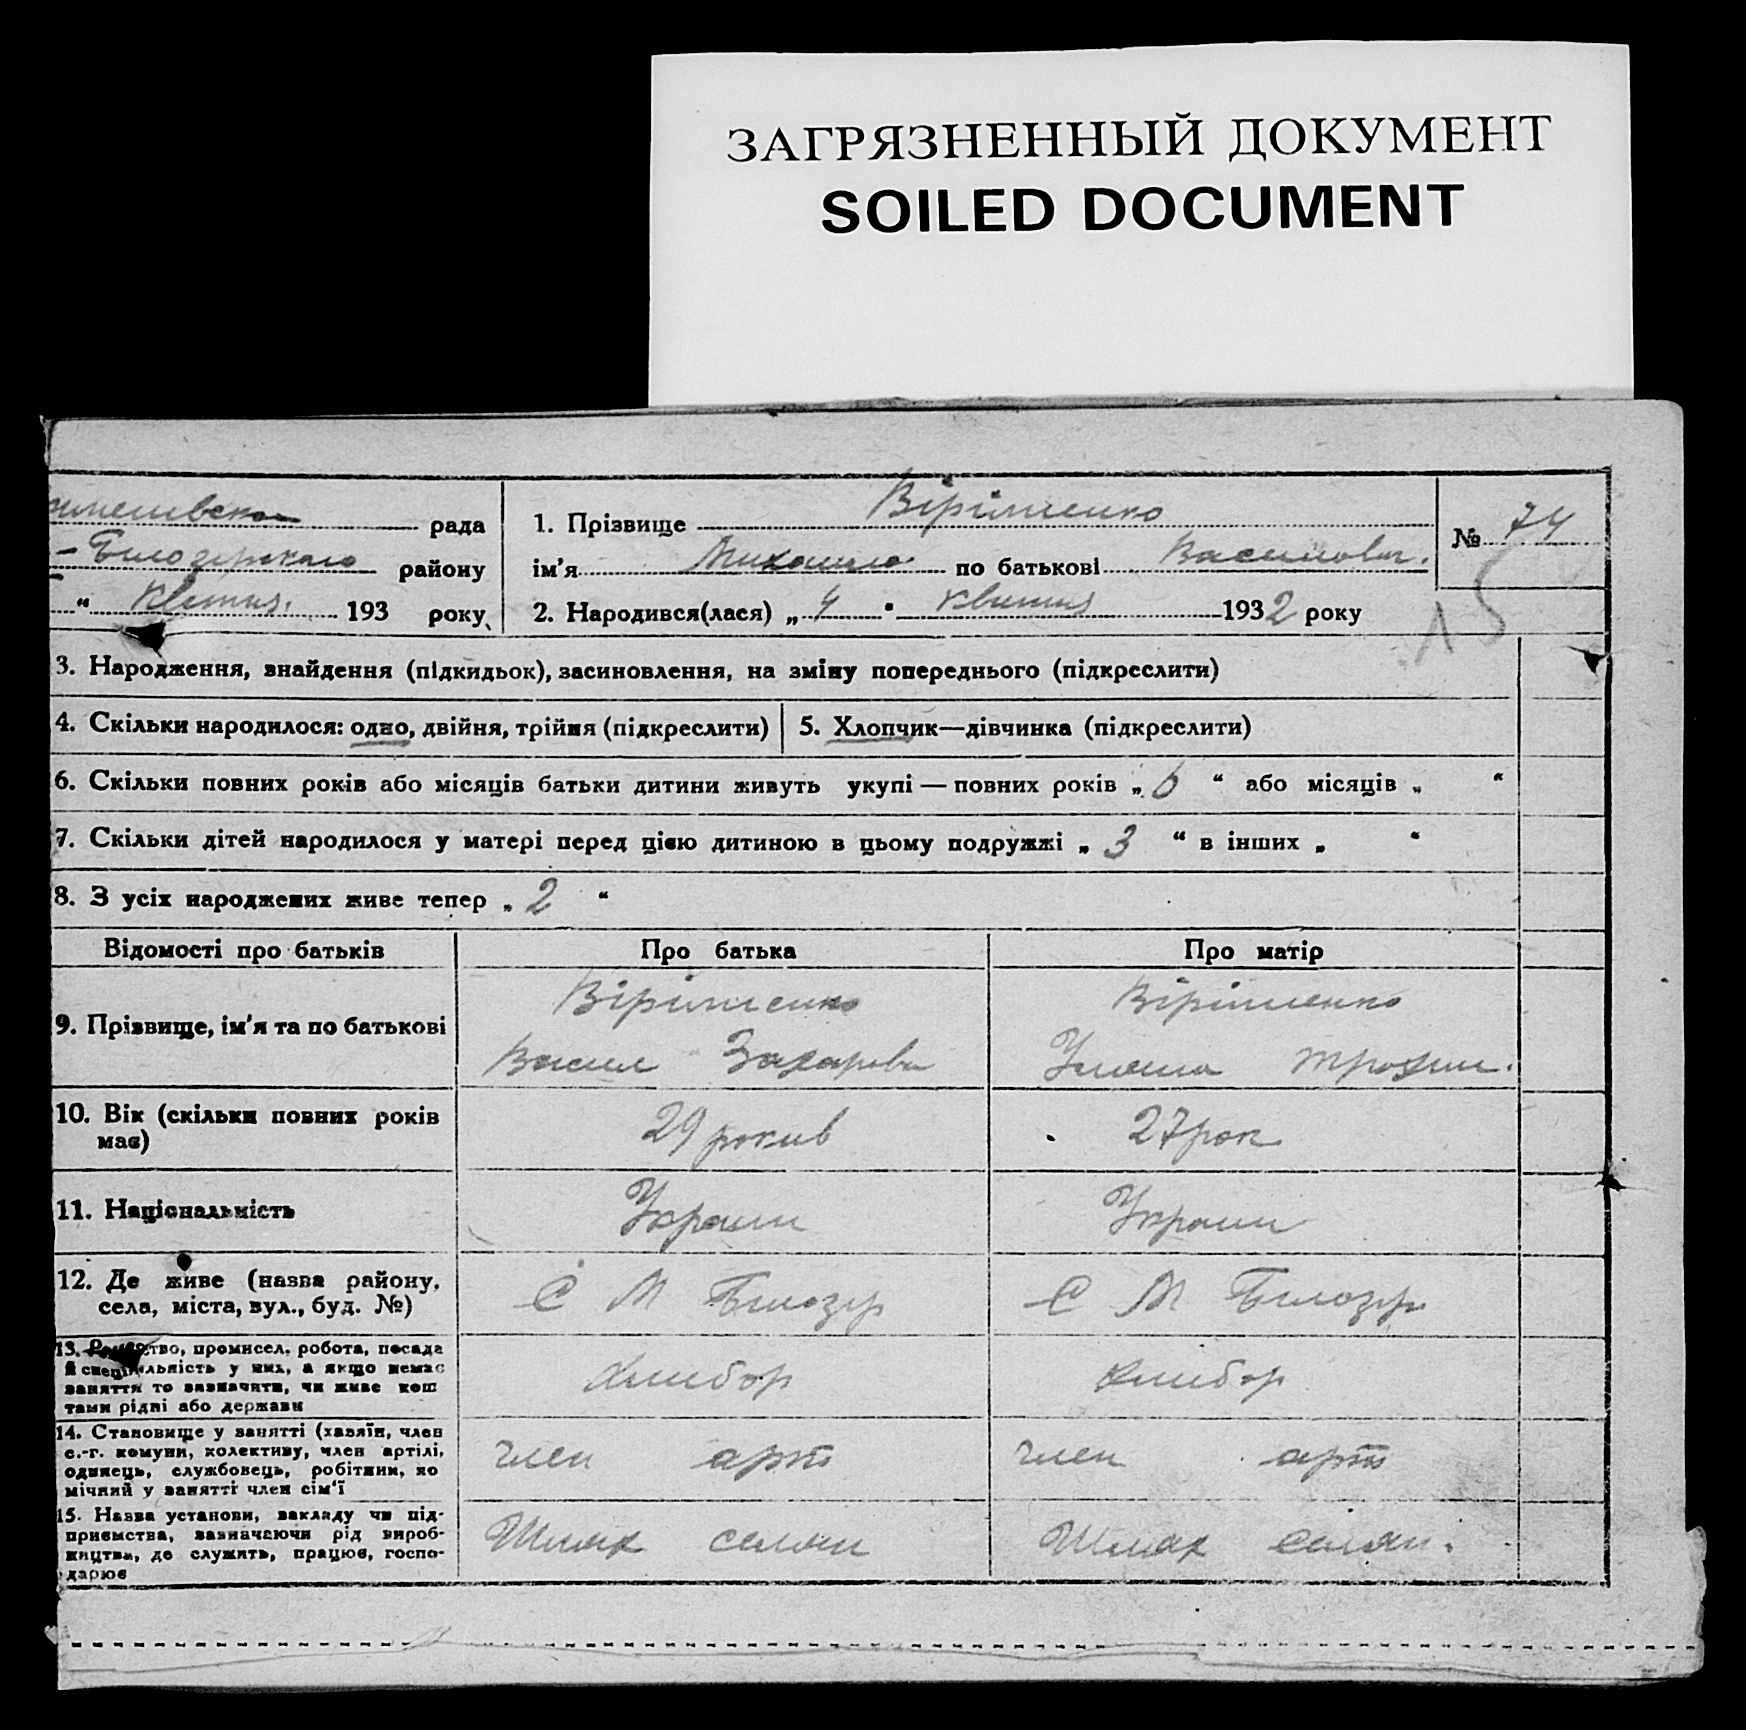 ЗАГРЯЗНЕННЫЙ ДОКУМЕНТ
SOILED DOCUMENT
рада
Білозерского району
“ Квітня. 193 року
1. Прізвище Вірішенко
ім'я Михайло по батькові Василович.
2. Народився(лася) „ 4 " квітня 1932 року
№ 74
15
3. Народження, знайдення (підкидьок), засиновлення, на зміну попереднього (підкреслити)
4. Скільки народилося: одно, двійня, трійня (підкреслити)
5. Хлопчик—дівчинка (підкреслити)
6. Скільки повних років або місяців батьки дитини живуть укупі — повних років „ 6 “ або місяців „ “
7. Скільки дітей народилося у матері перед цією дитиною в цьому подружжі „ 3 “ в інших „ “
8. З усіх народжених живе тепер „ 2 “
Відомості про батьків Про батька Про матір
9. Прізвище, ім'я та по батькові
Вірішенко
Васил Захарови
Вірішенко
Уляна Трофим.
10. Вік (скільки повних років
має)
29 років
27 рок
11. Національність
Украин
Украин
12. Де живе (назва району,
села, міста, вул., буд. №)
С М Білозір
С М Білозір
13. Ремество, промисел, робота, посада
й спеціяльність у них, а якщо немає
заняття то зазначити, чи живе кош
тами рідні або держави
хлибор
хлибор
14. Становище у занятті (хазяїн, член
с.-г. комуни, колективу, член артілі,
одинець, службовець, робітник, по
мічний у занятті член сім'ї
член арт
член арт
15. Назва установи, закладу чи під-
приємства, зазначаючи рід вироб-
ництва, де служить, працює, госпо-
дарює
Шлях селян
Шлях селян.